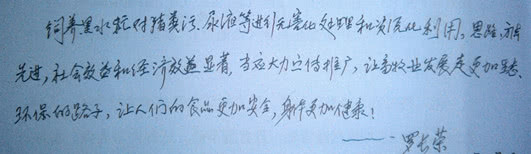 饲养黑水虻对猪粪污、尿液等进行无害化处理和资源化利用，思路方法
先进，社会效益和经济效益显著，当应大力宣传推广，让畜牧业发展走更加生态
环保的路子，让人们的食品更加安全，身体更加健康！
——罗长荣